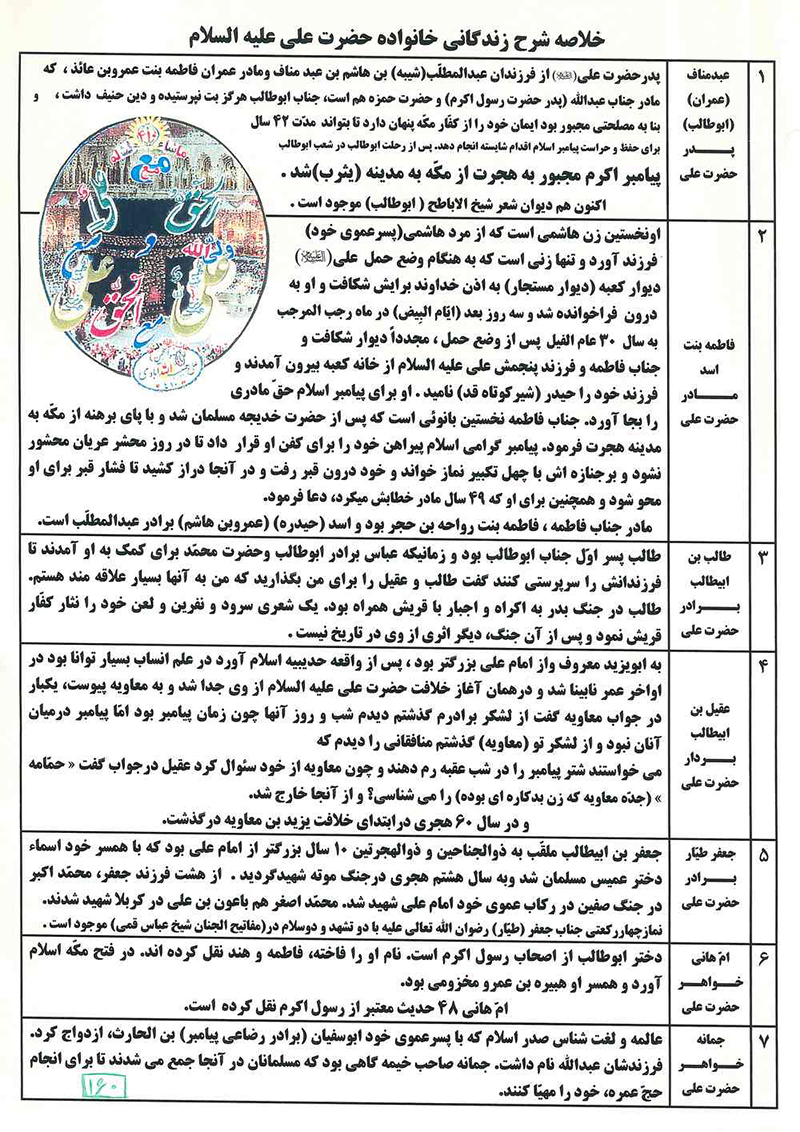 خلاصه شرح زندگانی خانواده حضرت علی علیه السلام
۱
عبدمناف
(عمران)
(ابوطالب)
پدر
حضرت علی
پدرحضرت علی(علیه السلام) از فرزندان عبدالمطلّب(شیبه) بن هاشم بن عبد مناف ومادر عمران فاطمه بنت عمروبن عائذ ، که
مادر جناب عبدالله (پدر حضرت رسول اکرم) و حضرت حمزه هم است، جناب ابوطالب هرگز بت نپرستیده و دین حنیف داشت ، و
بنا به مصلحتی مجبور بود ایمان خود را از کفّار مکّه پنهان دارد تا بتواند مدّت ۴۲ سال
برای حفظ و حراست پیامبر اسلام اقدام شایسته انجام دهد. پس از رحلت ابوطالب در شعب ابوطالب
پیامبر اکرم مجبور به هجرت از مکّه به مدینه (یثرب)شد .
اکنون هم دیوان شعر شیخ الاباطح ( ابوطالب) موجود است .
۲
فاطمه بنت
اسد
مادر
حضرت علی
اونخستین زن هاشمی است که از مرد هاشمی(پسرعموی خود)
فرزند آورد و تنها زنی است که به هنگام وضع حمل علی(علیه السلام)
دیوار کعبه (دیوار مستجار) به اذن خداوند برایش شکافت و او به
درون فراخوانده شد و سه روز بعد (ایّام البیض) در ماه رجب المرجب
به سال ۳۰ عام الفیل پس از وضع حمل ، مجدداً دیوار شکافت و
جناب فاطمه و فرزند پنجمش علی علیه السلام از خانه کعبه بیرون آمدند و
فرزند خود را حیدر (شیرکوتاه قد) نامید . او برای پیامبر اسلام حقّ مادری
را بجا آورد. جناب فاطمه نخستین بانوئی است که پس از حضرت خدیجه مسلمان شد و با پای برهنه از مکّه به
مدینه هجرت فرمود. پیامبر گرامی اسلام پیراهن خود را برای کفن او قرار داد تا در روز محشر عریان محشور
نشود و برجنازه اش با چهل تکبیر نماز خواند و خود درون قبر رفت و در آنجا دراز کشید تا فشار قبر برای او
محو شود و همچنین برای او که ۴۹ سال مادر خطابش میکرد، دعا فرمود.
مادر جناب فاطمه ، فاطمه بنت رواحه بن حجر بود و اسد (حیدره) (عمروبن هاشم) برادر عبدالمطلّب است.
۳
طالب بن
ابیطالب
برادر
حضرت علی
طالب پسر اوّل جناب ابوطالب بود و زمانیکه عباس برادر ابوطالب وحضرت محمّد برای کمک به او آمدند تا
فرزندانش را سرپرستی کنند گفت طالب و عقیل را برای من بگذارید که من به آنها بسیار علاقه مند هستم.
طالب در جنگ بدر به اکراه و اجبار با قریش همراه بود. یک شعری سرود و نفرین و لعن خود را نثار کفّار
قریش نمود و پس از آن جنگ، دیگر اثری از وی در تاریخ نیست .
۴
عقیل بن
ابیطالب
بردار
حضرت علی
به ابویزید معروف واز امام علی بزرگتر بود ، پس از واقعه حدیبیه اسلام آورد در علم انساب بسیار توانا بود در
اواخر عمر نابینا شد و درهمان آغاز خلافت حضرت علی علیه السلام از وی جدا شد و به معاویه پیوست، یکبار
در جواب معاویه گفت از لشکر برادرم گذشتم دیدم شب و روز آنها چون زمان پیامبر بود امّا پیامبر درمیان
آنان نبود و از لشکر تو (معاویه) گذشتم منافقانی را دیدم که
می خواستند شتر پیامبر را در شب عقبه رم دهند و چون معاویه از خود سئوال کرد عقیل درجواب گفت « حمّامه
» (جدّه معاویه که زن بدکاره ای بوده) را می شناسی؟ و از آنجا خارج شد.
و در سال ۶۰ هجری درابتدای خلافت یزید بن معاویه درگذشت.
۵
جعفر طیّار
برادر
حضرت علی
جعفر بن ابیطالب ملقّب به ذوالجناحین و ذوالهجرتین ۱۰ سال بزرگتر از امام علی بود که با همسر خود اسماء
دختر عمیس مسلمان شد وبه سال هشتم هجری درجنگ موته شهیدگردید . از هشت فرزند جعفر، محمّد اکبر
در جنگ صفین در رکاب عموی خود امام علی شهید شد. محمّد اصغر هم باعون بن علی در کربلا شهید شدند.
نمازچهاررکعتی جناب جعفر (طیّار) رضوان الله تعالی علیه با دو تشهد و دوسلام در(مفاتیح الجنان شیخ عباس قمی) موجود است .
۶
امّ هانی
خواهر
حضرت علی
دختر ابوطالب از اصحاب رسول اکرم است. نام او را فاخته، فاطمه و هند نقل کرده اند. در فتح مکّه اسلام
آورد و همسر او هبیره بن عمرو مخزومی بود.
امّ هانی ۴۸ حدیث معتبر از رسول اکرم نقل کرده است.
۷
جمانه
خواهر
حضرت علی
عالمه و لغت شناس صدر اسلام که با پسرعموی خود ابوسفیان (برادر رضاعی پیامبر) بن الحارث، ازدواج کرد.
فرزندشان عبدالله نام داشت. جمانه صاحب خیمه گاهی بود که مسلمانان در آنجا جمع می شدند تا برای انجام
حجّ عمره، خود را مهیّا کنند.
۱۶۰